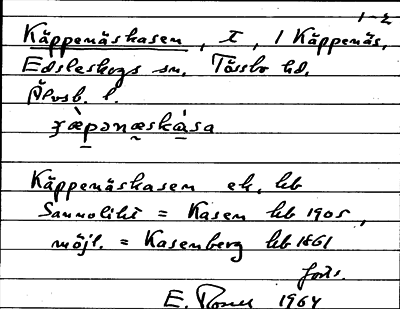 1-2
Käppenäskasen, I, 1 Käppenäs,
Edsleskogs sn. Tössbo hd.
Älvsb. l.
Käppenäskasen ek. kb
Sannolikt = Kasen kb 1905,
möjl. = Kasenberg kb 1861
forts.
E. 1964